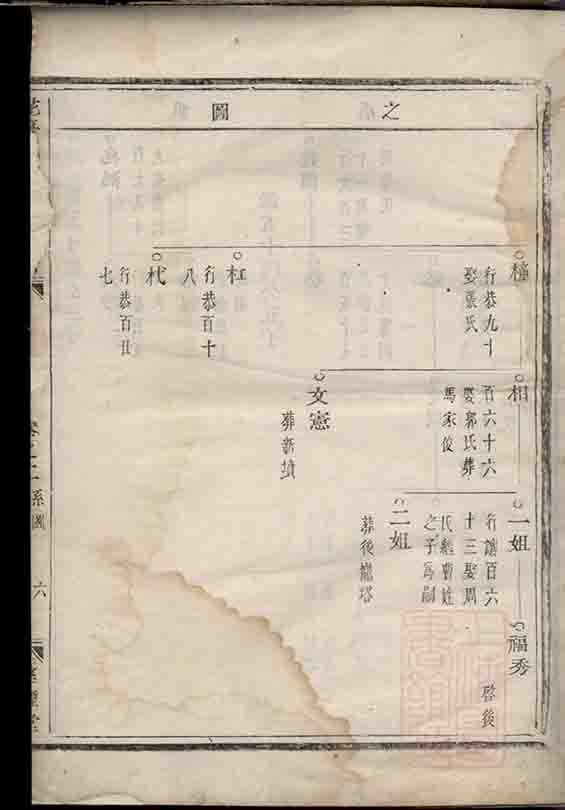 之圖
枉
行恭百十
八
杙
行恭百廿
七
行恭九十
娶張氏
相
百六十六
娶郭氏葬
馬家佼
文憲
葬新墳
一姐
行讓百六
十三娶周
氏繼曹姓
之子為嗣
二姐
葬後龍塔
福秀
啓後
系圖
六